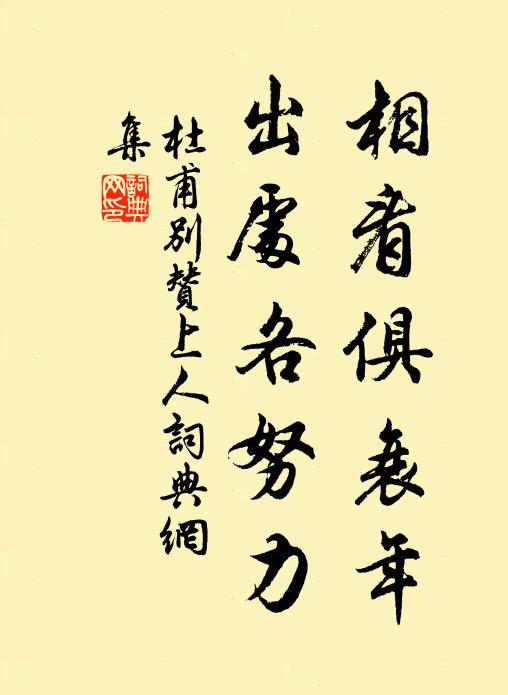 相看俱衰年
出處各努力
杜甫別贊上人詞典網
集
詞典
网印